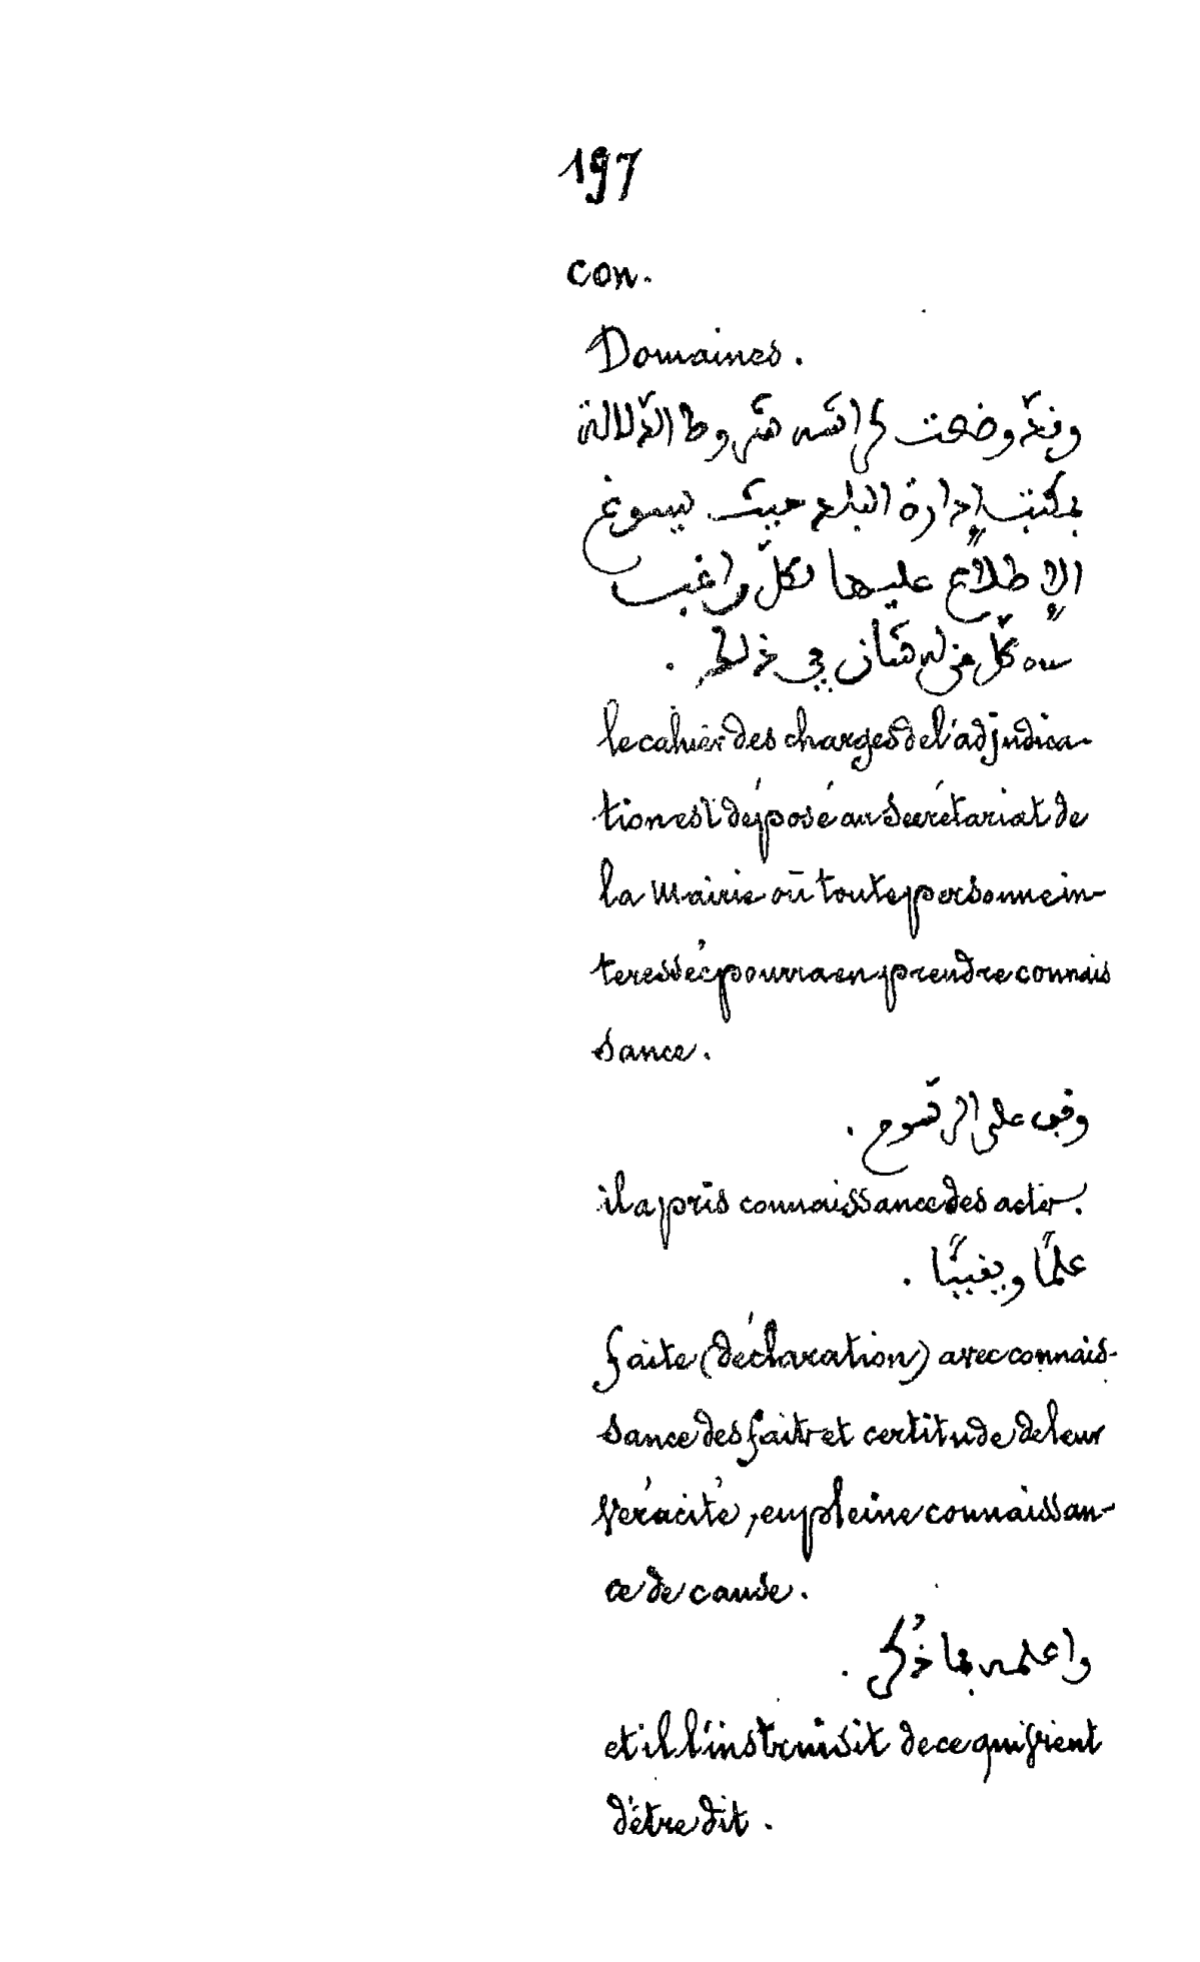 197
con.
Domaines.
وقد وضعت كراسة شروط الدّلالة
بمكتب إدارة البلد حيث يسوغ
الإطلاع عليها لكلّ راغب
كلّ من له شان في ذلك.
le cahier des charges de l'adjudica-
tion est déposé au Secrétariat de
la Mairie où toute personne in-
teressée pourra en prendre connais
sance.
وقف على الرسوم.
il a pris connaissance des actes.
علمًا ويقينًا.
faite (déclaration) avec connais-
sance des faits et certitude de leur
véracité, en pleine connaissan-
ce de cause.
واعلمه بما ذُكر.
et il l'instruisit de ce qui vient
d'être dit.